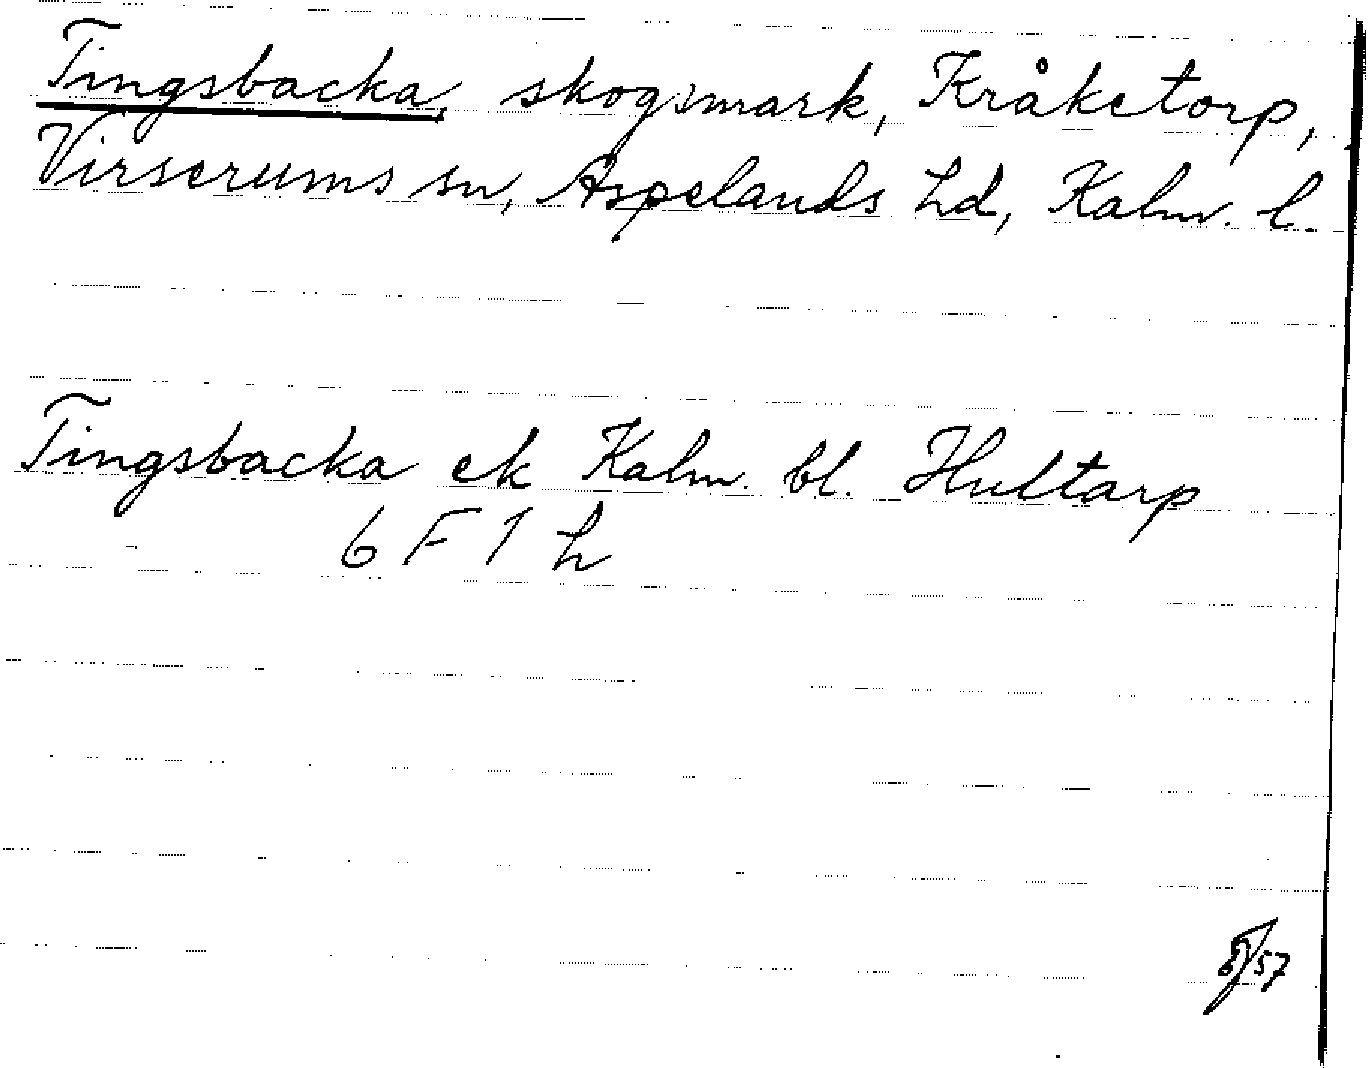 Tingsbacka, skogsmark, Kråketorp,
Virserums sn, Aspelands hd, Kalm. l.
Tingsbacka ek Kalm. bl. Hultarp
6 F 1 h